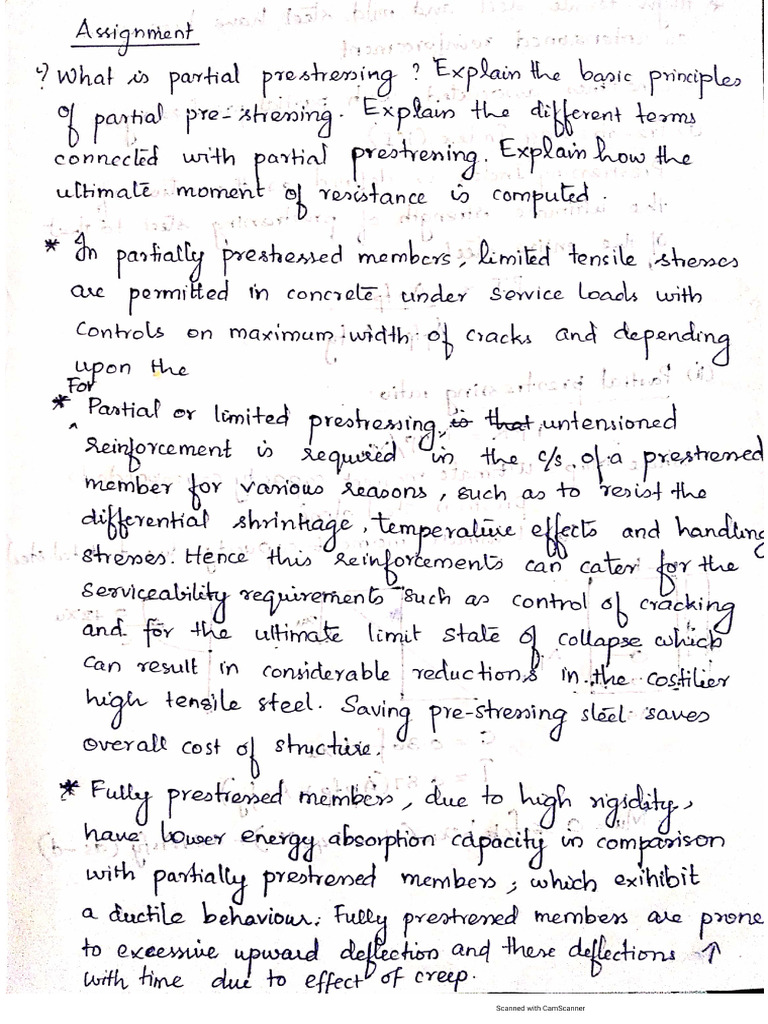 Assignment
4) What is partial prestressing? Explain the basic principles
of partial pre-stressing. Explain the different terms
connected with partial prestressing. Explain how the
ultimate moment of resistance is computed.
* In partially prestressed members, limited tensile stresses
are permitted in concrete under service loads with
controls on maximum width of cracks and depending
upon the
For
* Partial or limited prestressing, is that untensioned
reinforcement is required in the c/s of a prestressed
member for various reasons, such as to resist the
differential shrinkage, temperature effects and handling
stresses. Hence this reinforcements can cater for the
serviceability requirements such as control of cracking
and for the ultimate limit state of collapse which
can result in considerable reductions in the costilier
high tensile steel. Saving pre-stressing steel saves
overall cost of structure.
* Fully prestressed members, due to high rigidity,
have lower energy absorption capacity in comparison
with partially prestressed members, which exihibit
a ductile behaviour. Fully prestressed members are prone
to excessive upward deflection and these deflections ↑
with time due to effect of creep.
Scanned with CamScanner